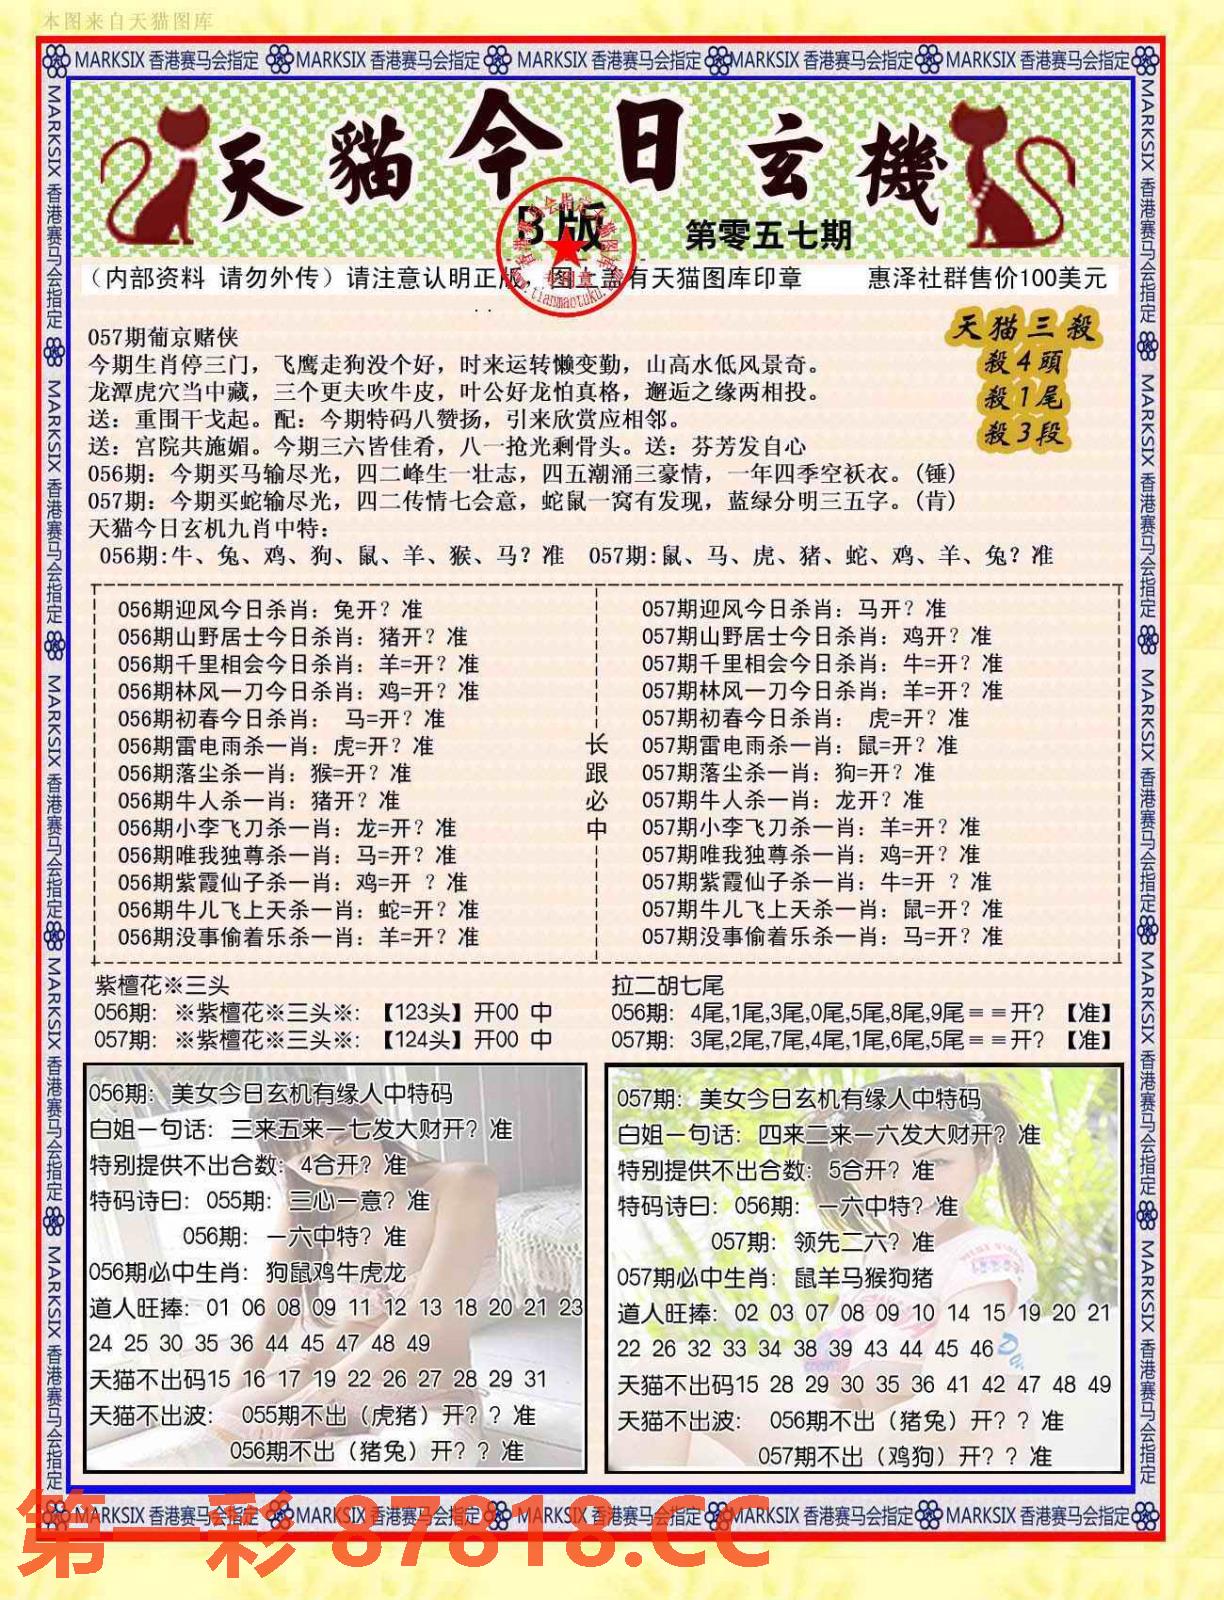 本图来自天猫图库
MARKSIX 香港赛马会指定 MARKSIX 香港赛马会指定 MARKSIX 香港赛马会指定 MARKSIX 香港赛马会指定 MARKSIX 香港赛马会指定
天貓今日玄機
B版
第零五七期
（内部资料 请勿外传）请注意认明正版 图上盖有天猫图库印章 惠泽社群售价100美元
天猫三殺
殺4頭
殺1尾
殺3段
057期葡京赌侠
今期生肖停三门，飞鹰走狗没个好，时来运转懒变勤，山高水低风景奇。
龙潭虎穴当中藏，三个更夫吹牛皮，叶公好龙怕真格，邂逅之缘两相投。
送：重围干戈起。配：今期特码八赞扬，引来欣赏应相邻。
送：宫院共施媚。今期三六皆佳肴，八一抢光剩骨头。送：芬芳发自心
056期：今期买马输尽光，四二峰生一壮志，四五潮涌三豪情，一年四季空袄衣。(锤)
057期：今期买蛇输尽光，四二传情七会意，蛇鼠一窝有发现，蓝绿分明三五字。(肯)
天猫今日玄机九肖中特：
056期:牛、兔、鸡、狗、鼠、羊、猴、马？准 057期:鼠、马、虎、猪、蛇、鸡、羊、兔？准
056期迎风今日杀肖：兔开？准
056期山野居士今日杀肖：猪开？准
056期千里相会今日杀肖：羊=开？准
056期林风一刀今日杀肖：鸡=开？准
056期初春今日杀肖： 马=开？准
056期雷电雨杀一肖：虎=开？准
056期落尘杀一肖：猴=开？准
056期牛人杀一肖：猪开？准
056期小李飞刀杀一肖：龙=开？准
056期唯我独尊杀一肖：马=开？准
056期紫霞仙子杀一肖：鸡=开 ？准
056期牛儿飞上天杀一肖：蛇=开？准
056期没事偷着乐杀一肖：羊=开？准
长跟必中
057期迎风今日杀肖：马开？准
057期山野居士今日杀肖：鸡开？准
057期千里相会今日杀肖：牛=开？准
057期林风一刀今日杀肖：羊=开？准
057期初春今日杀肖： 虎=开？准
057期雷电雨杀一肖：鼠=开？准
057期落尘杀一肖：狗=开？准
057期牛人杀一肖：龙开？准
057期小李飞刀杀一肖：羊=开？准
057期唯我独尊杀一肖：鸡=开？准
057期紫霞仙子杀一肖：牛=开 ？准
057期牛儿飞上天杀一肖：鼠=开？准
057期没事偷着乐杀一肖：马=开？准
紫檀花※三头
056期：※紫檀花※三头※：【123头】开00 中
057期：※紫檀花※三头※：【124头】开00 中
拉二胡七尾
056期：4尾,1尾,3尾,0尾,5尾,8尾,9尾＝＝开？【准】
057期：3尾,2尾,7尾,4尾,1尾,6尾,5尾＝＝开？【准】
056期：美女今日玄机有缘人中特码
白姐一句话：三来五来一七发大财开？准
特别提供不出合数：4合开？准
特码诗曰：055期：三心一意？准
056期：一六中特？准
056期必中生肖：狗鼠鸡牛虎龙
道人旺捧：01 06 08 09 11 12 13 18 20 21 23
24 25 30 35 36 44 45 47 48 49
天猫不出码15 16 17 19 22 26 27 28 29 31
天猫不出波： 055期不出（虎猪）开？？准
056期不出（猪兔）开？？准
057期：美女今日玄机有缘人中特码
白姐一句话：四来二来一六发大财开？准
特别提供不出合数：5合开？准
特码诗曰：056期：一六中特？准
057期：领先二六？准
057期必中生肖：鼠羊马猴狗猪
道人旺捧：02 03 07 08 09 10 14 15 19 20 21
22 26 32 33 34 38 39 43 44 45 46
天猫不出码15 28 29 30 35 36 41 42 47 48 49
天猫不出波： 056期不出（猪兔）开？？准
057期不出（鸡狗）开？？准
MARKSIX 香港赛马会指定 MARKSIX 香港赛马会指定 MARKSIX 香港赛马会指定 MARKSIX 香港赛马会指定 MARKSIX 香港赛马会指定
第一彩 87818.CC
MARKSIX 香港赛马会指定 MARKSIX 香港赛马会指定 MARKSIX 香港赛马会指定 MARKSIX 香港赛马会指定 MARKSIX 香港赛马会指定
MARKSIX 香港赛马会指定 MARKSIX 香港赛马会指定 MARKSIX 香港赛马会指定 MARKSIX 香港赛马会指定 MARKSIX 香港赛马会指定